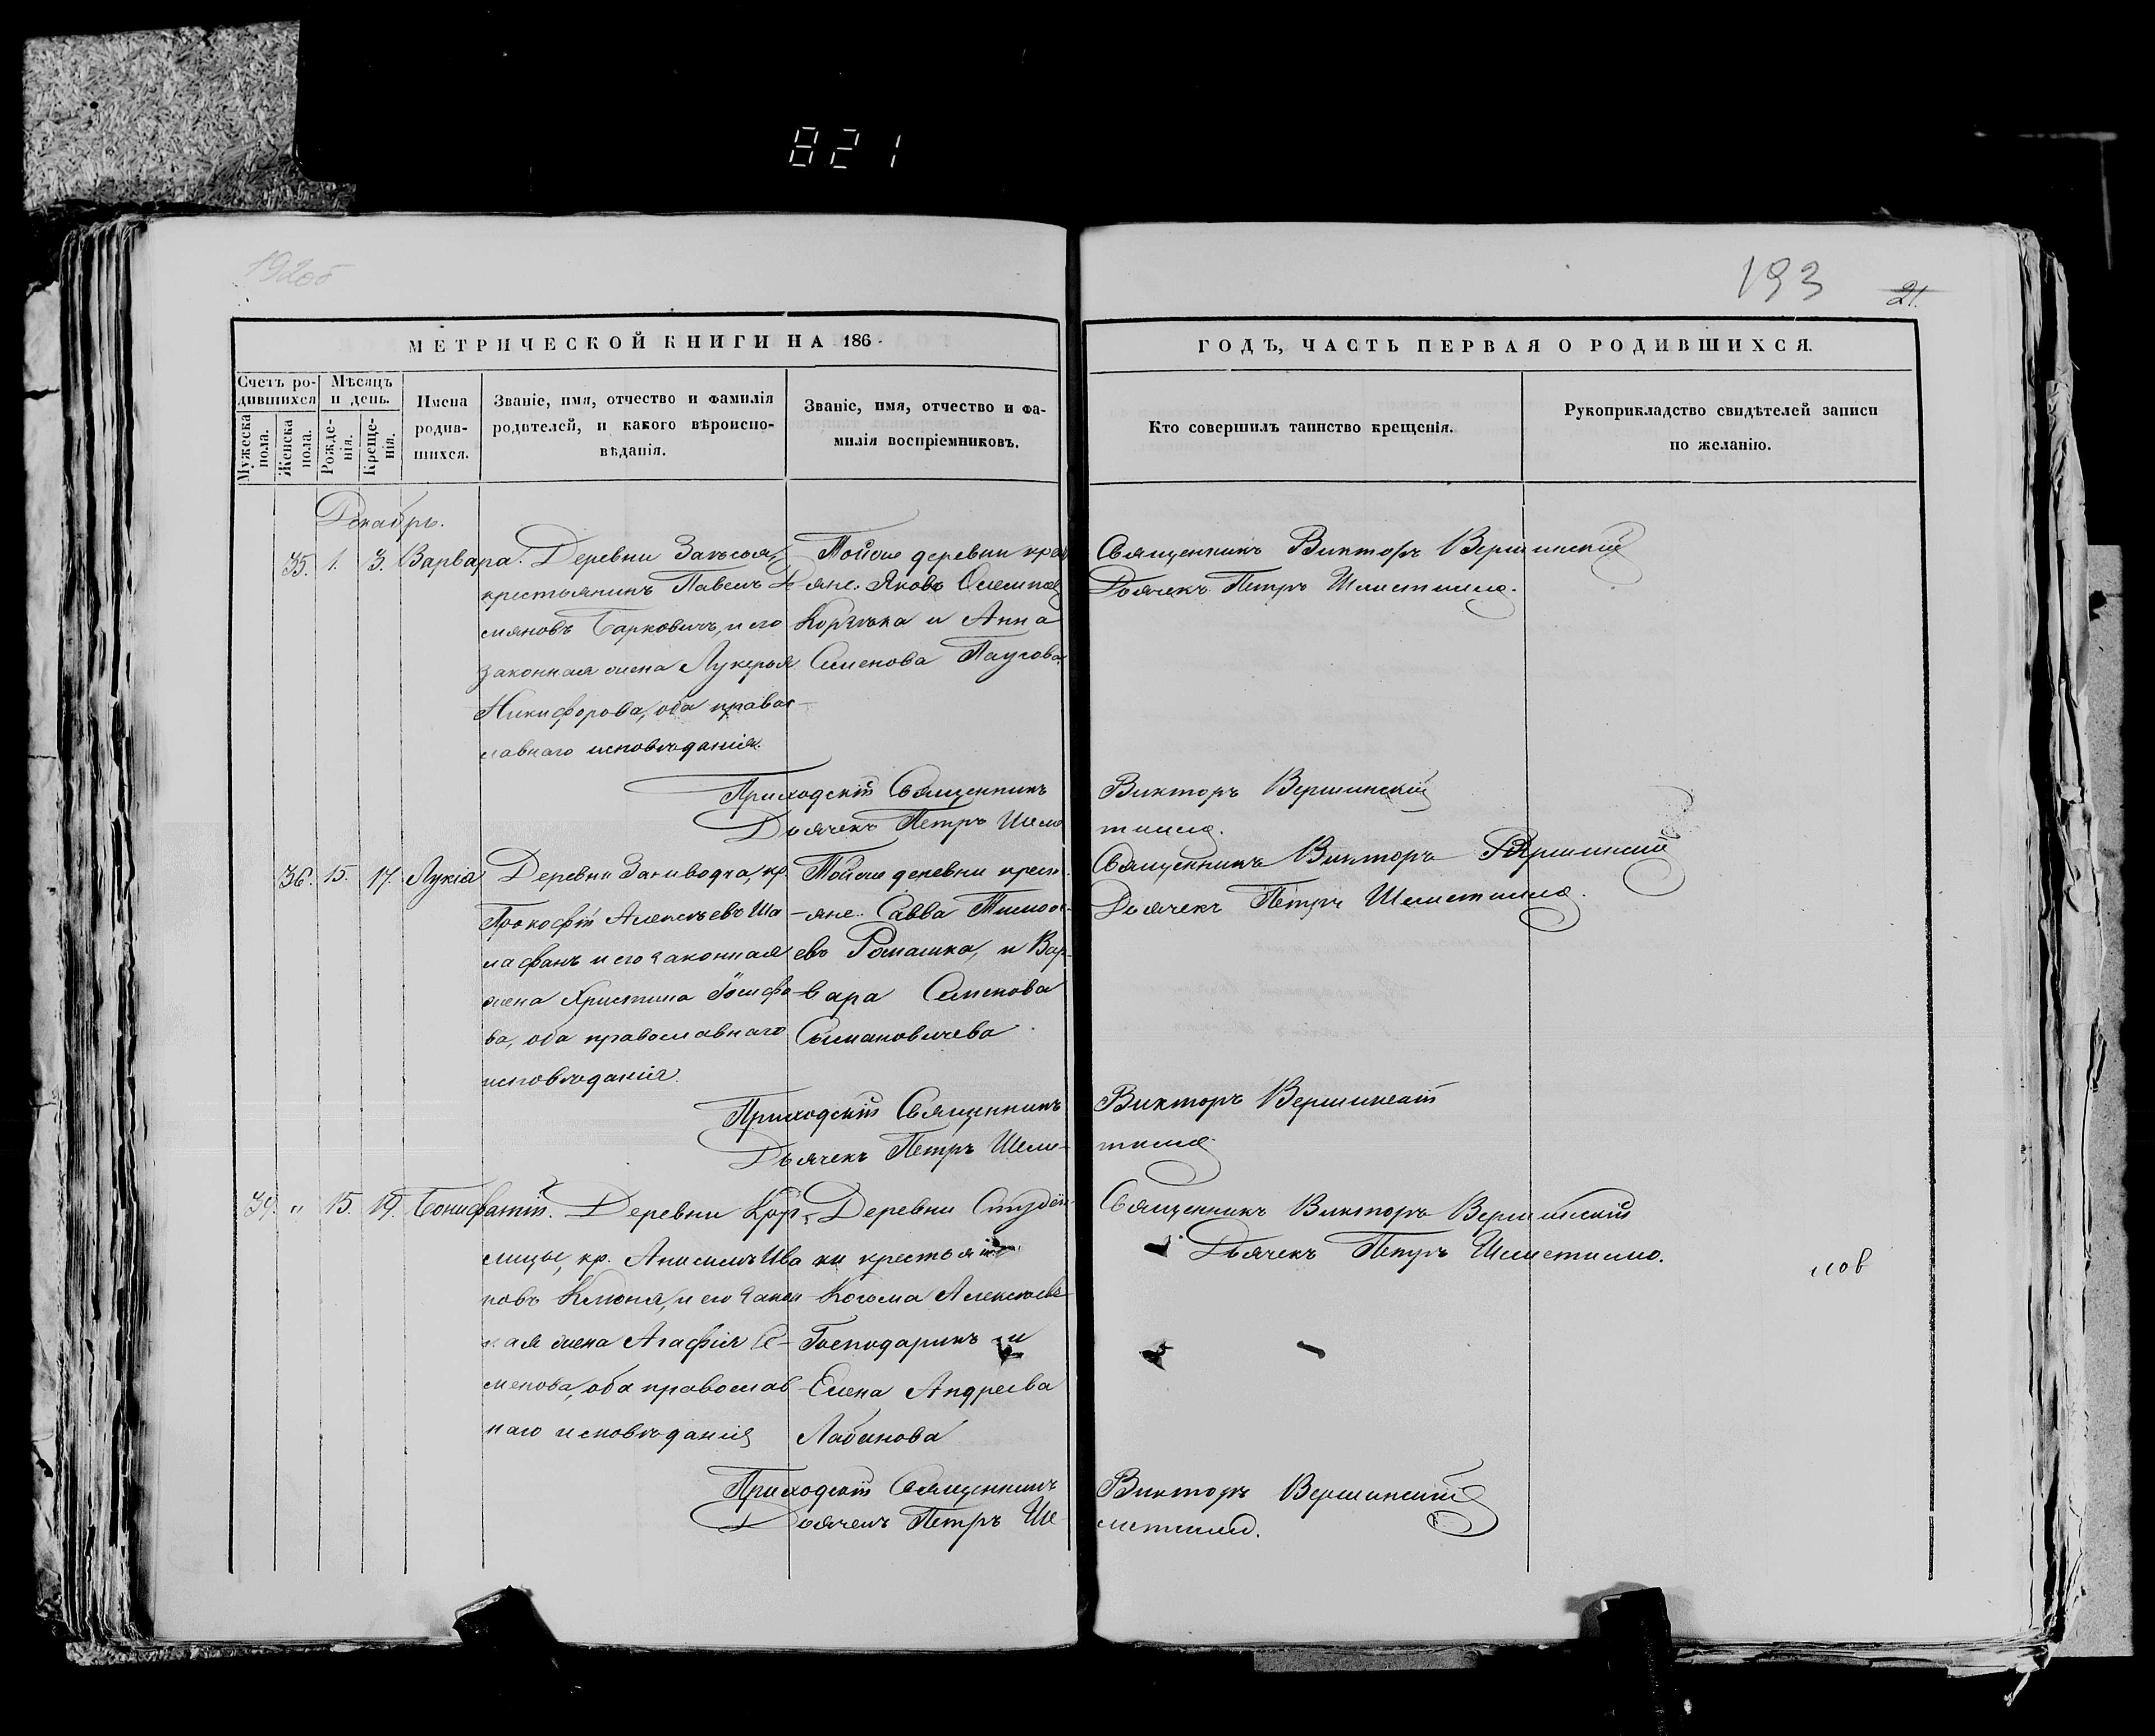 821
192об
193
21.
МЕТРИЧЕСКОЙ КНИГИ НА 186
ГОДЪ, ЧАСТЬ ПЕРВАЯ О РОДИВШИХСЯ.
Счетъ ро-
дившихся
Мужеска
пола.
Женска
пола.
Мѣсяцъ
и день.
Рожде-
нія.
Креще-
нія.
Имена
родив-
шихся.
Званіе, имя, отчество и фамилія
родителей, и какого вѣроиспо-
вѣданія.
Званіе, имя, отчество и фа-
милія воспріемниковъ.
Кто совершилъ таинство крещенія.
Рукоприкладство свидѣтелей записи
по желанію.
Декабрь.
35. 1. 3. Варвара.
Деревни
крестьянинъ Павелъ Де
мяновъ Барковичъ, и его
законная жена Лукерья
Никифорова, оба правос-
лавнаго исповѣданія.
Тойже деревни
яне: Яковъ
и Анна
Семенова
Священникъ Викторъ Вершинскій
Дьячекъ Петръ
Приходскій Священникъ Викторъ Вершинскій
Дьячекъ Петръ
36. 15. 17. Лукія
Деревни кр.
Прокофій Алексѣевъ Ша
лафанъ и его законная
жена Христина Іосифо
ва, оба православнаго
исповѣданія.
Тойже деревни крест-
яне: Савва Тимоѳ-
евъ Ромашка, и Вар-
вара Семенова
Сымановичева
Священникъ Викторъ Вершинскій
Дьячекъ Петръ
Приходскій Священникъ Викторъ Вершинскій
Дьячекъ Петръ
39. " 15. 19. Бонифатій.
Деревни
кр. Анисимъ Ива
новъ Клюня, и его закон
ная жена Агафія Се-
менова, оба православ
наго исповѣданія
Деревни Студён
ки крестьян
Косьма Алексѣевъ
Господарикъ и
Елена Андреева
Лабанова
Священникъ Викторъ Вершинскій
Дьячекъ Петръ
лов
Приходскій Священникъ Викторъ Вершинскій
Дьячекъ Петръ